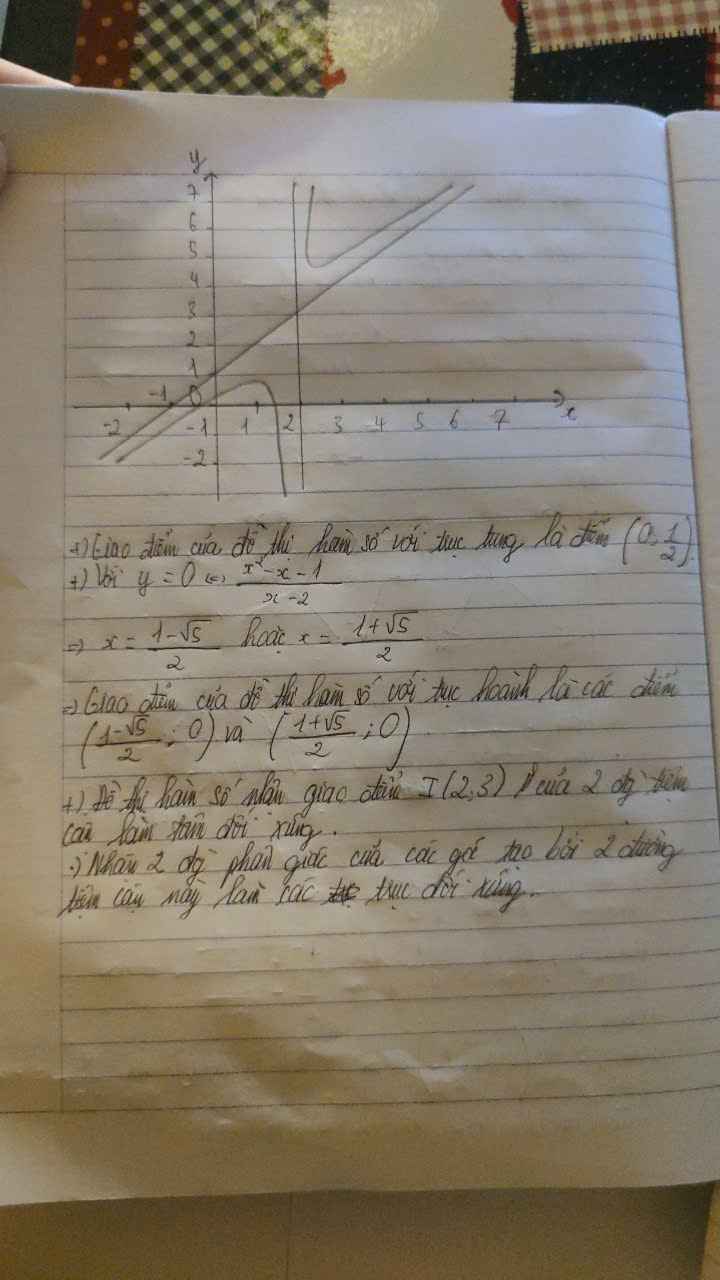 y
7
6
5
4
3
2
1
-1 0
-2 -1 1 2 3 4 5 6 7 x
-2
+) Giao điểm của đồ thị hàm số với trục tung là điểm (0; 1/2).
+) Với y = 0 <=> (x² - x - 1)/(x - 2)
=> x = (1-√5)/2 hoặc x = (1+√5)/2
=> Giao điểm của đồ thị hàm số với trục hoành là các điểm
((1-√5)/2 ; 0) và ((1+√5)/2 ; 0).
+) Đồ thị hàm số nhận giao điểm I(2;3) của 2 đg tiệm
cận làm tâm đối xứng.
+) Nhận 2 đg phân giác của các góc tạo bởi 2 đường
tiệm cận này làm các trục đối xứng.